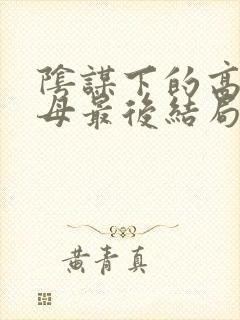 陰謀下的高
母最後結局
黃青真